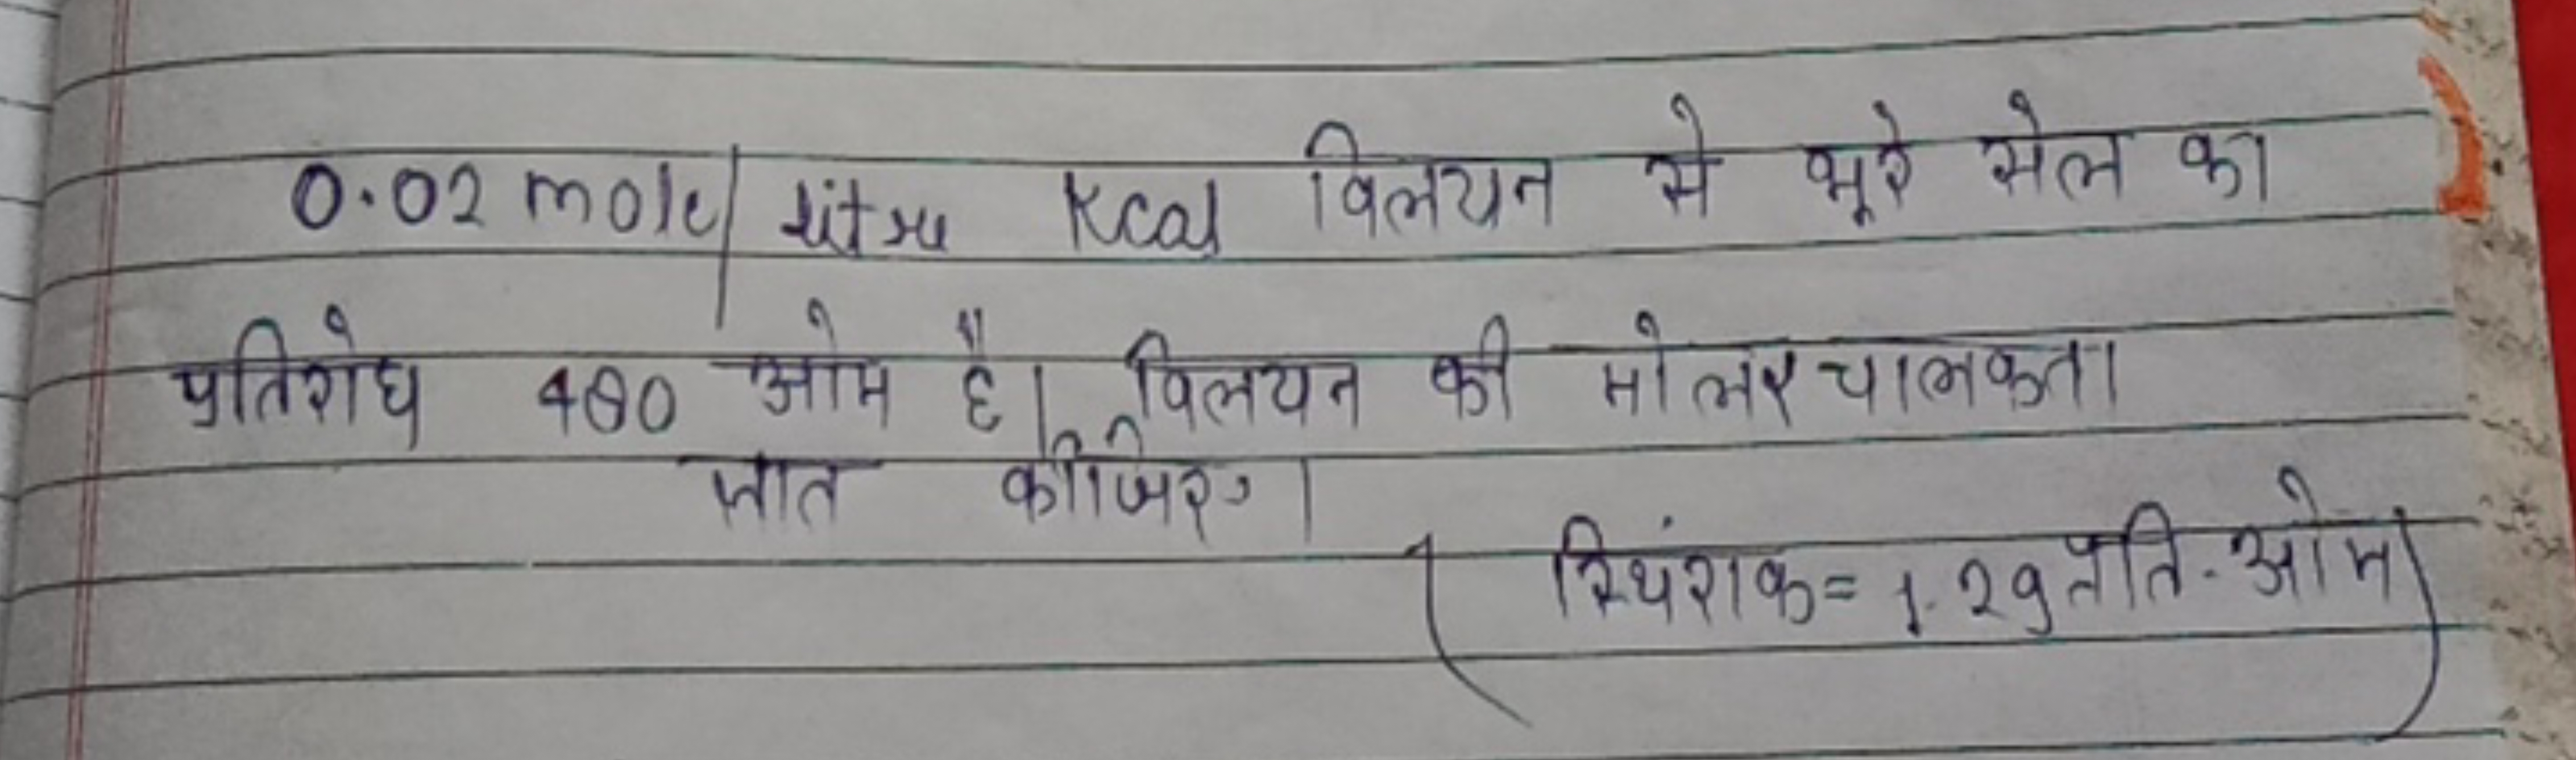 0.02 mole/ litre Kcal विलयन से भूरे सेल का
प्रतिरोध 480 ओम है। विलयन की मोलर चालकता
ज्ञात कीजिए।
(स्थिंराक = 1.29 प्रति-ओम)